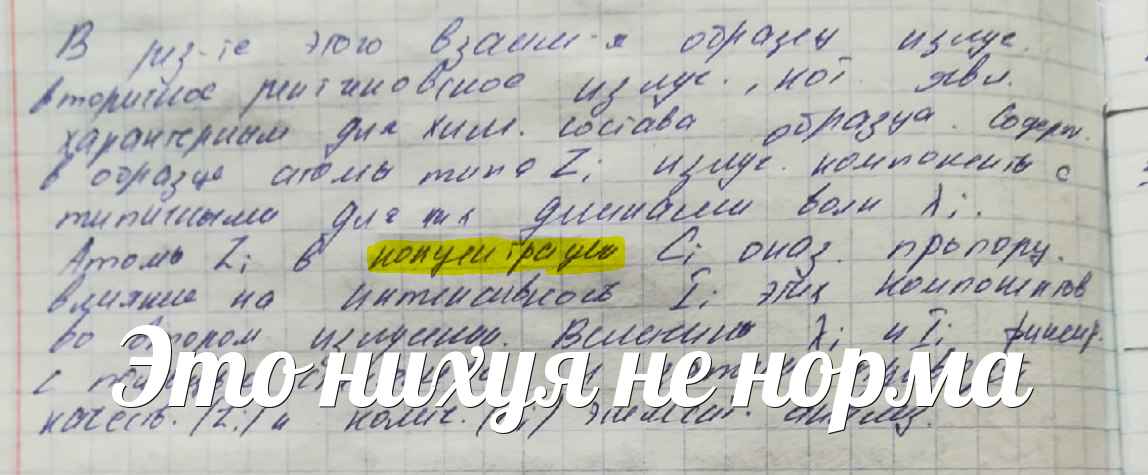 В рез-те этого взаим-я образец излуч.
вторичное рентгеновское излуч., кот. явл.
характерным для хим. состава образца. Содерж.
в образце атомы типа Zi излуч. компоненты с
типичными для них длинами волн λi.
Атомы Zi в концентрации Ci оказ. пропорц.
влияние на интенсивность Ii этих компонентов
во втором излучении. Величины λi и Ii фиксир.
Это нихуя не норма
с
качеств. (Zi) и колич. (Ci) элемент. анализ.